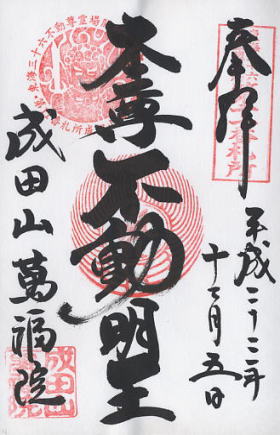 奉拝
平成二十二年
十二月五日
本尊
不動明王
成田山萬福院
東海三十六不動尊霊場
札所
成田山